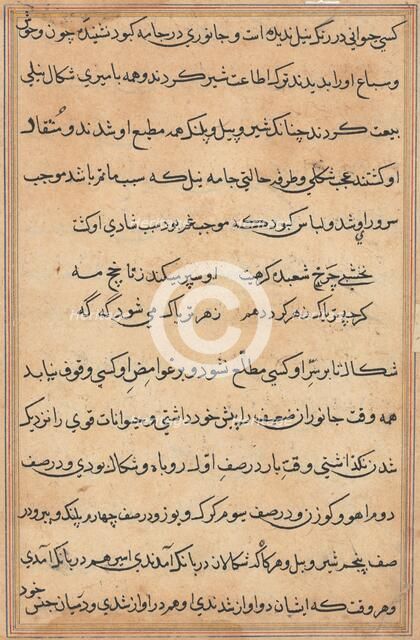 کسی جوانی در رنگ نیل ندیده است و جانوری در جامه کبود نشنیده چون وحوش
و سباع او را بدیدند ترک اطاعت شیر کردند و همه با میری شکال نیلی
بیعت کردند چنانکه شیر و پیل و پلنک همه مطیع او شدند و منقاد
او کشتند عجب شکلی و طرفه حالتی جامه نیل که سبب ماتم باشد موجب
سرور او شد و لباس کبود که موجب غم بود سبب شادی او کشت
نخشبی چرخ شعبده کرهیست
کرچه تریاک زهر کردد هم زهر تریاک می شود که که
شکال تا بر سر او کسی مطلع نشود و بر غوامض او کسی وقوف نیابد
همه وقت جانوران ضعیف را پیش خود داشتی و حیوانات قوی را نزدیک
شدن نکذاشتی وقت بار در صف اول روباه و شکال بودی و در صف
دوم اهو و کوزن و در صف سوم کرک و یوز و در صف چهارم پلنک و ببر و در
صف پنجم شیر و پیل و هرکاه که شکالان در بانک آمدندی او نیز هم در بانک آمدی
و هر وقت که ایشان در اواز شدندی او هم در اواز شدی و در میان جنس خود